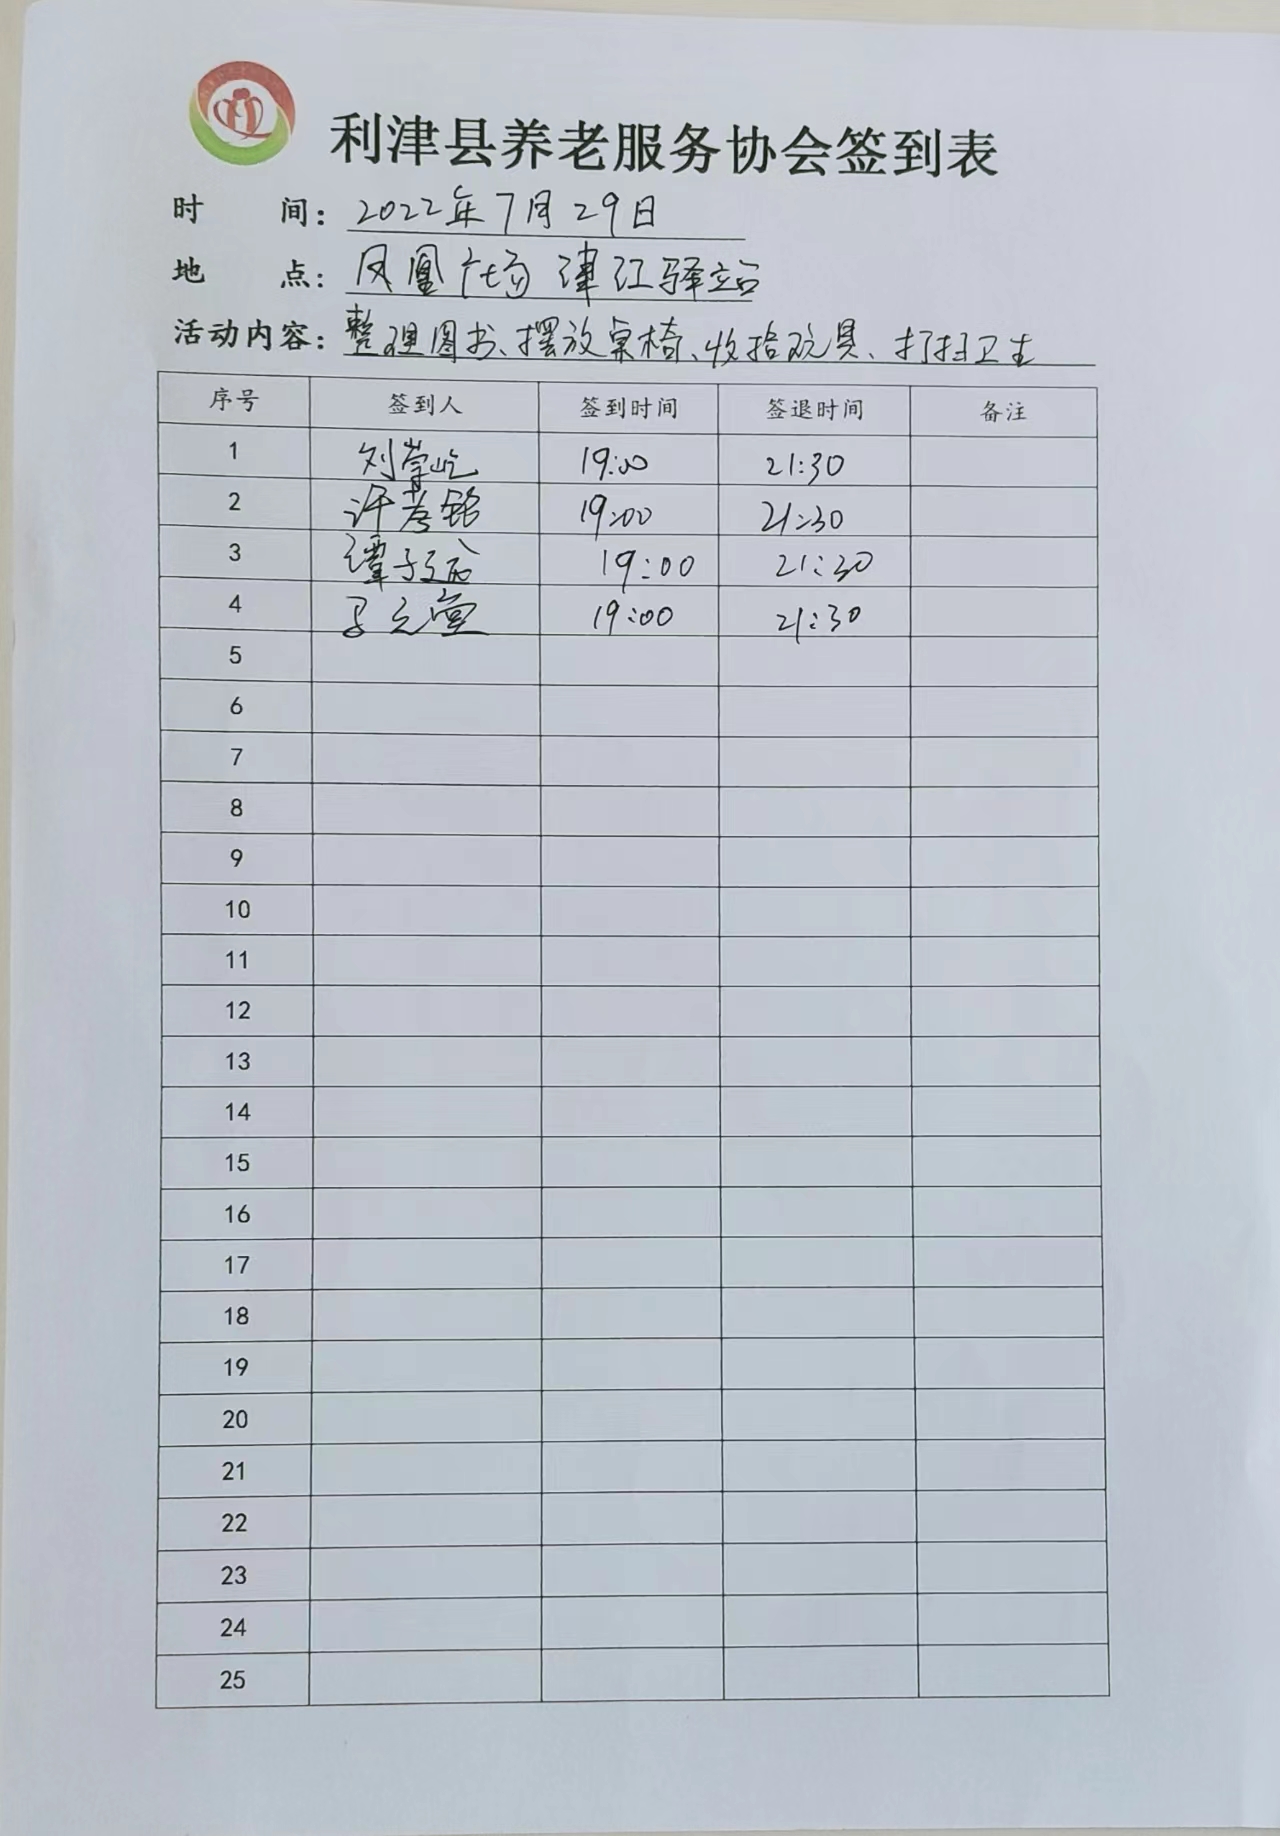 利津县养老服务协会签到表
时 间：2022年7月29日
地 点：凤凰广场 津江驿站
活动内容：整理图书、摆放桌椅、收拾玩具、打扫卫生
序号 签到人 签到时间 签退时间 备注
1 刘 屹 19:00 21:30
2 许孝铭 19:00 21:30
3 谭子 19:00 21:30
4 19:00 21:30
5
6
7
8
9
10
11
12
13
14
15
16
17
18
19
20
21
22
23
24
25